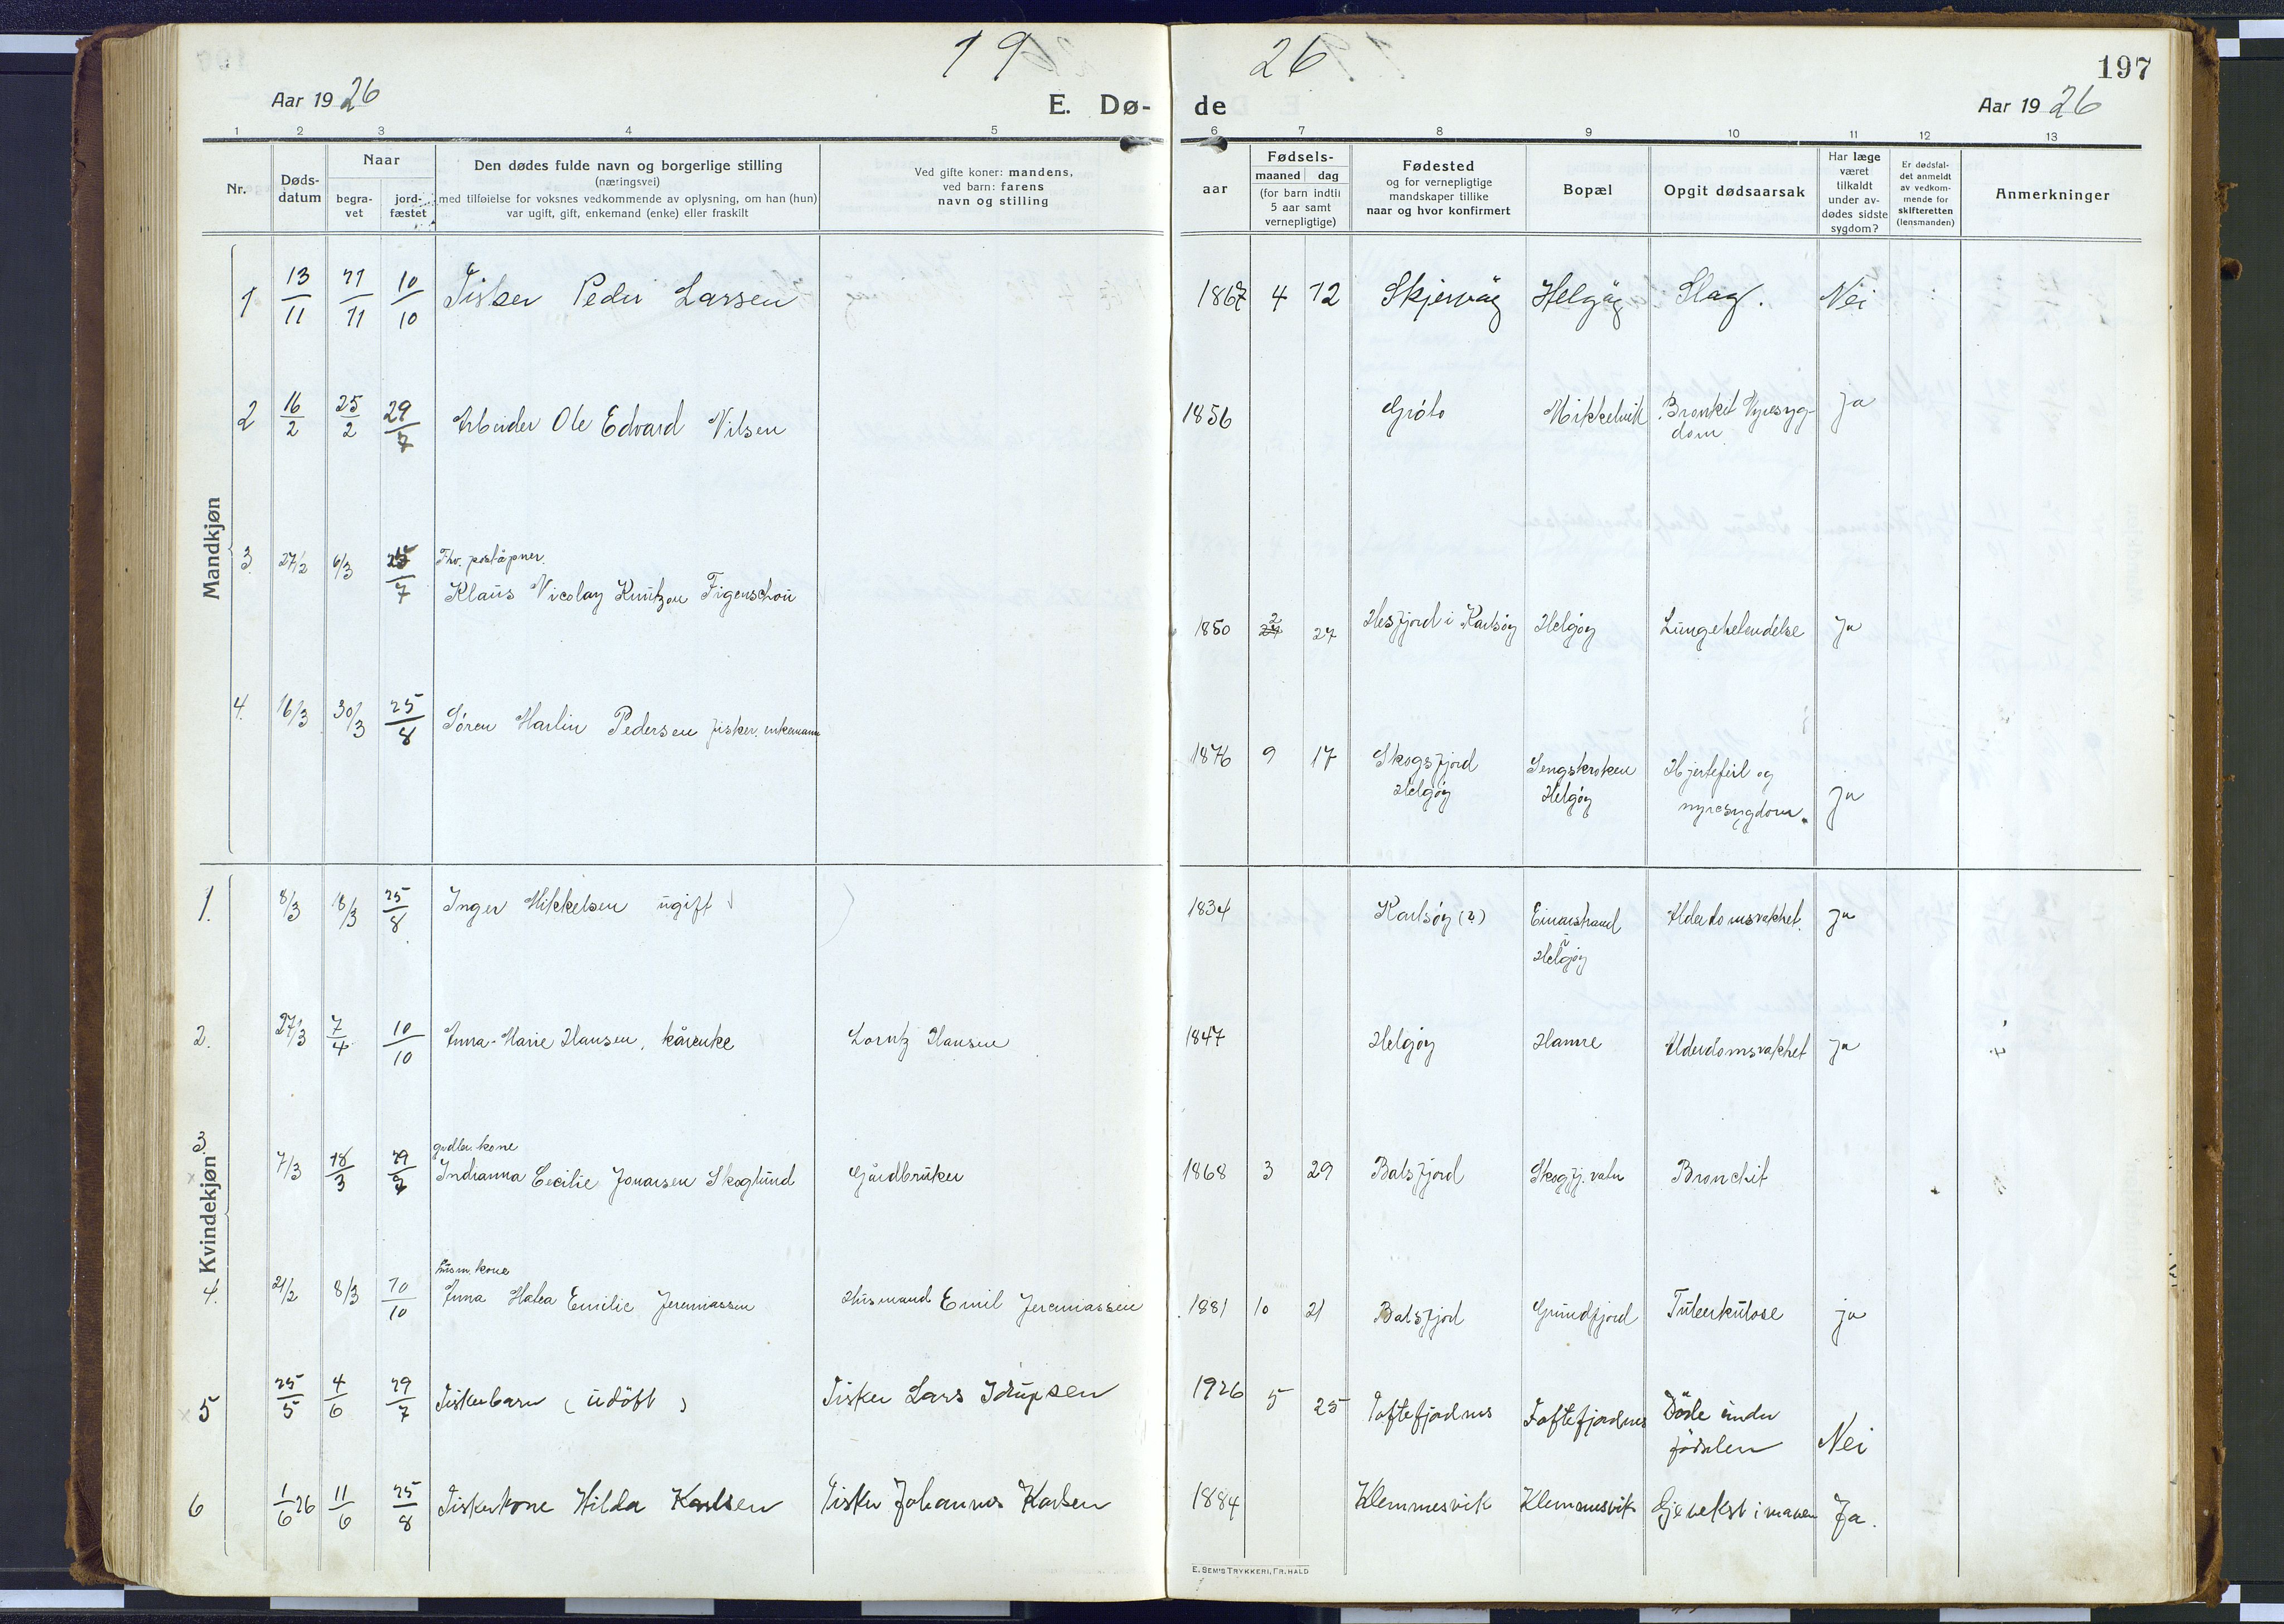 19 26
197
Aar 1926
E. Dø- de
Aar 1926
1 2 3 4 5 6 7 8 9 10 11 12 13
Nr.
Døds-datum
Naar
begra-vet
jord-fæstet
Den dødes fulde navn og borgerlige stilling
(næringsvei)
med tilføielse for voksnes vedkommende av oplysning, om han (hun)
var ugift, gift, enkemand (enke) eller fraskilt
Ved gifte koner: mandens,
ved barn: farens
navn og stilling
Fødsels-
aar
maaned dag
(for barn indtil
5 aar samt
vernepligtige)
Fødested
og for vernepligtige
mandskaper tillike
naar og hvor konfirmert
Bopæl
Opgit dødsaarsak
Har læge
været
tilkaldt
under av-
dødes sidste
sygdom?
Er dødsfal-
det anmeldt
av vedkom-
mende for
skifteretten
(lensmanden)
Anmerkninger
Mandkjøn
1 13/11 11/11 10/10 Fisker Peder Larsen 1867 4 12 Skjervøy Helgøy Slag. Nei
2 16/2 25/2 29/7 Arbeider Ole Edvard Nilsen 1856 Grøto Mikkelvik Bronkit Nyresyg-
dom Ja
3. 27/2 6/3 25/7 Fhv. poståpner.
Klaus Nicolay Knutzon Figenschou 1850 2 27 Hesfjord i Karlsøy Helgøy Lungebetendelse Ja
4. 16/3 30/3 25/8 Søren Martin Pedersen fisker. enkemann 1876 9 17 Skogsfjord
Helgøy Sengskroken
Helgøy Hjertefeil og
nyresygdom. Ja
Kvindekjøn
1. 8/3 18/3 25/8 Inger Mikkelsen ugift 1834 Karlsøy (?) Einarstrand
Helgøy Alderdomsvakhet. Ja
2. 27/3 7/4 10/10 Anna-Marie Hansen, kårenke Lorntz Hansen 1847 Helgøy Hamre Alderdomsvakhet Ja
3 7/3 18/3 29/7 gndbr. kone
Indianna Cecilie Jonassen Skoglund Gårdbruker 1868 3 29 Balsfjord Skogfj. vatn Bronchit
4. 21/2 8/3 10/10 husm. kone
Anna Halea Emilie Jeremiassen Husmand Emil Jeremiassen 1881 10 21 Balsfjord Grundfjord Tuberkulose ja
5 25/5 4/6 29/7 Fiskerbarn (udöbt) Fisker Lars 1926 5 25 Toftefjordnes Toftefjordnes Döde under
födselen Nei
6 1/6 26 11/6 25/8 Fiskerkone Hilda Karlsen Fisker Johannes Karlsen 1884 Klemmesvik Klemmesvik Gjevekst i maven Ja.
E. SEM'S TRYKKERI, FR. HALD